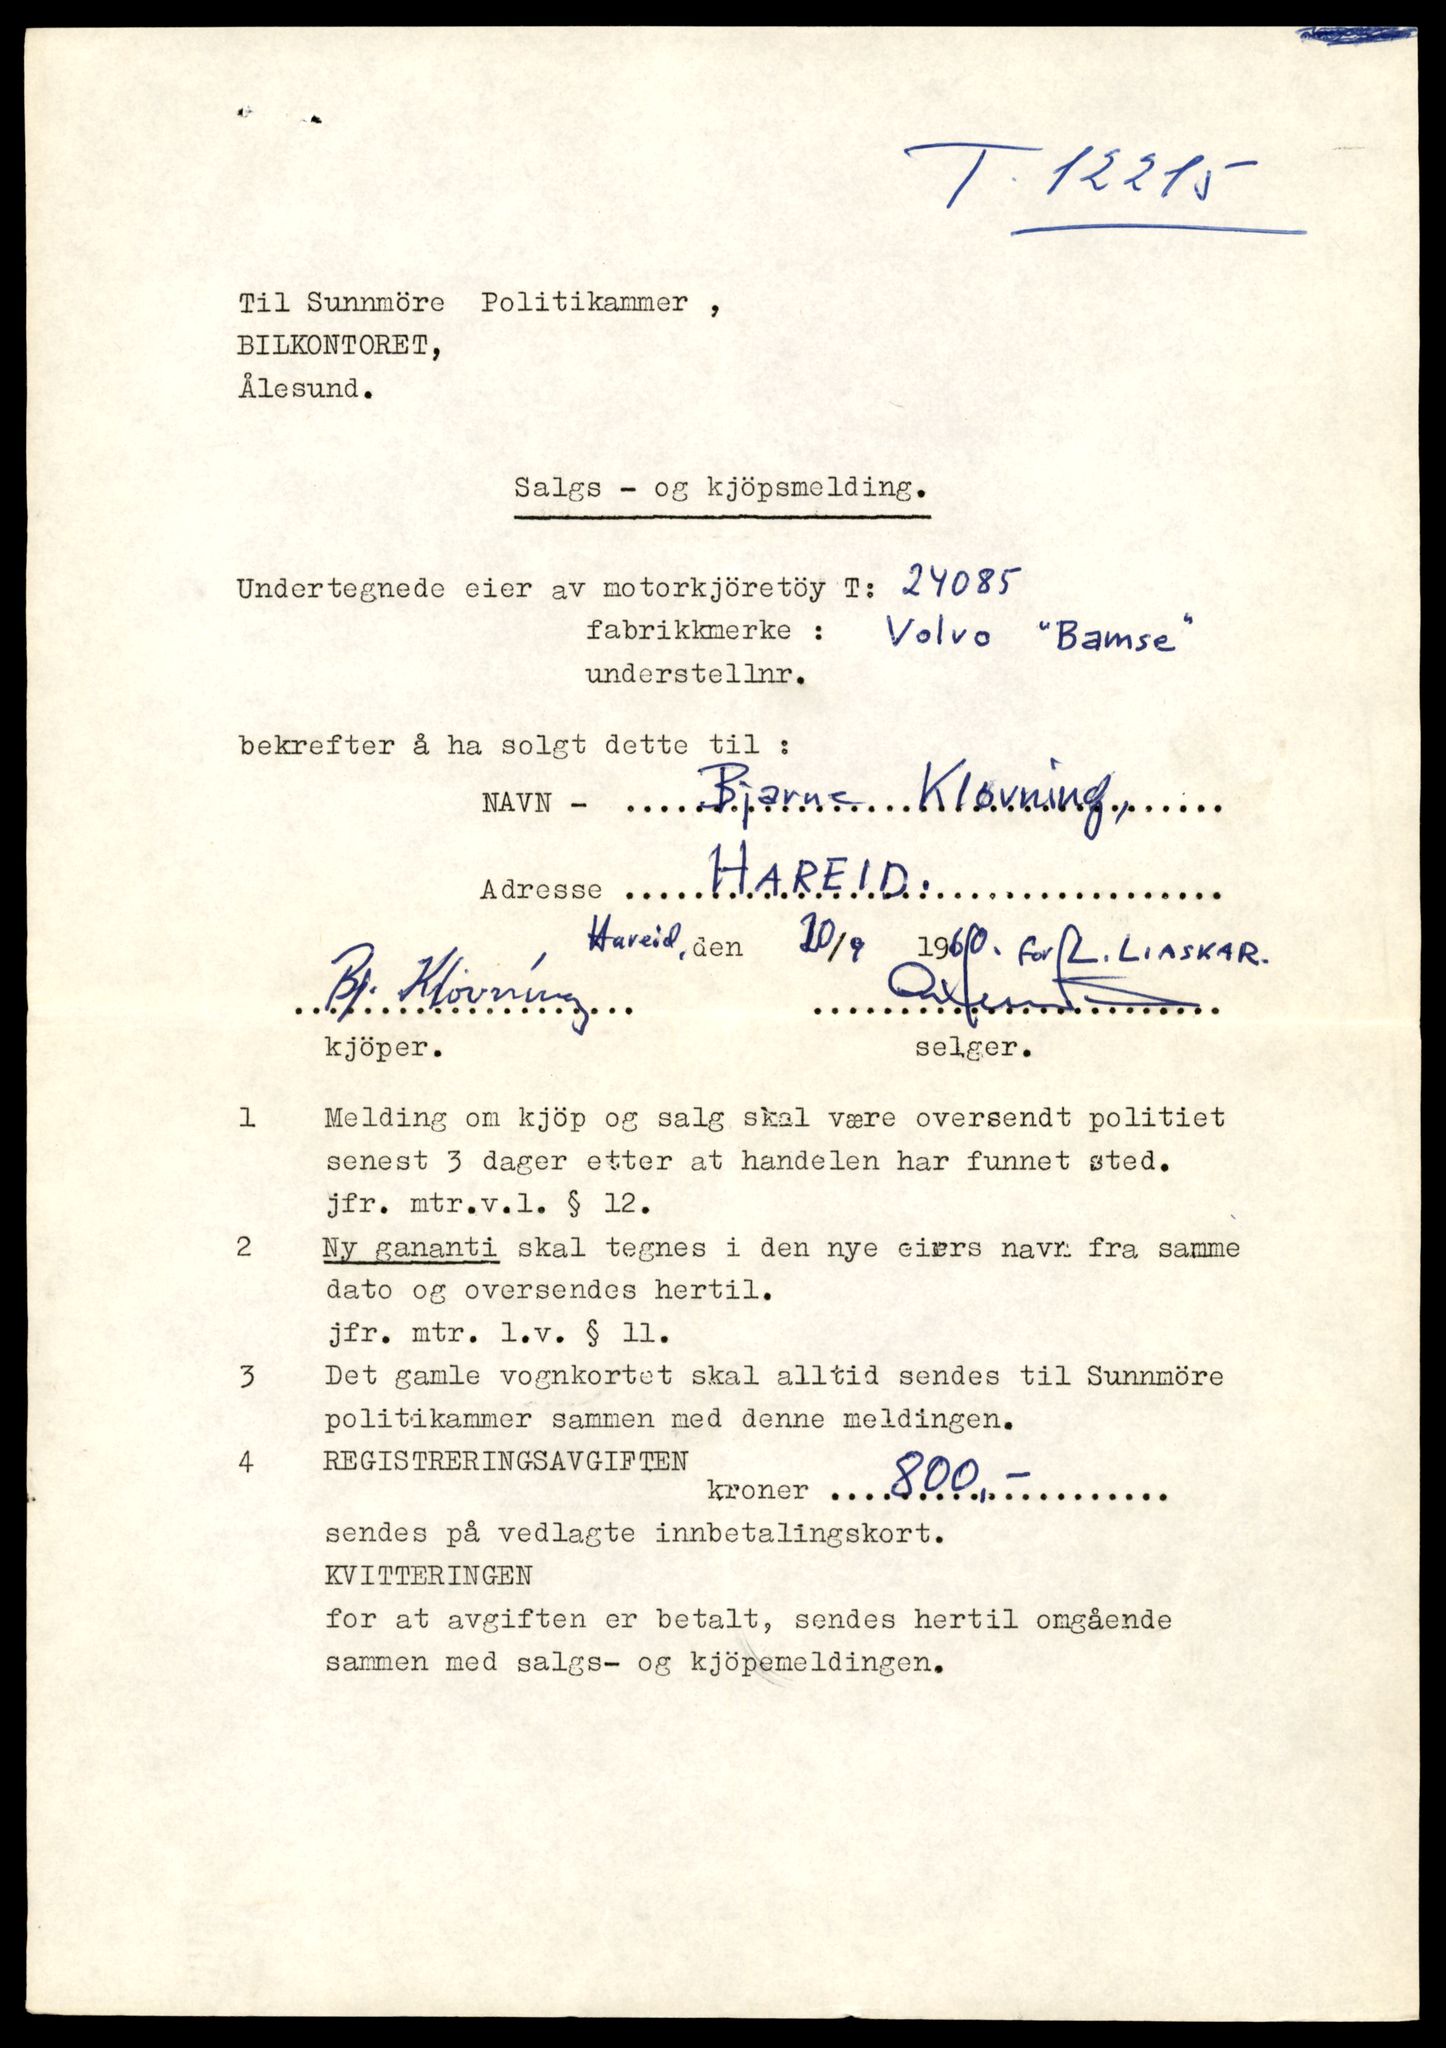 T. 12215
Til Sunnmöre Politikammer ,
BILKONTORET,
Ålesund.
Salgs - og kjöpsmelding.
Undertegnede eier av motorkjöretöy T: 24085
fabrikkmerke : Volvo "Bamse"
understellnr.
bekrefter å ha solgt dette til :
NAVN - Bjarne Kløvning,
Adresse HAREID.
Hareid, den 20/9 1960. for L. LIASKAR.
Bj. Kløvning
kjöper. selger.
1 Melding om kjöp og salg skal være oversendt politiet
senest 3 dager etter at handelen har funnet sted.
jfr. mtr.v.l. § 12.
2 Ny gananti skal tegnes i den nye eiers navn fra samme
dato og oversendes hertil.
jfr. mtr. l.v. § 11.
3 Det gamle vognkortet skal alltid sendes til Sunnmöre
politikammer sammen med denne meldingen.
4 REGISTRERINGSAVGIFTEN
kroner 800,-
sendes på vedlagte innbetalingskort.
KVITTERINGEN
for at avgiften er betalt, sendes hertil omgående
sammen med salgs- og kjöpemeldingen.